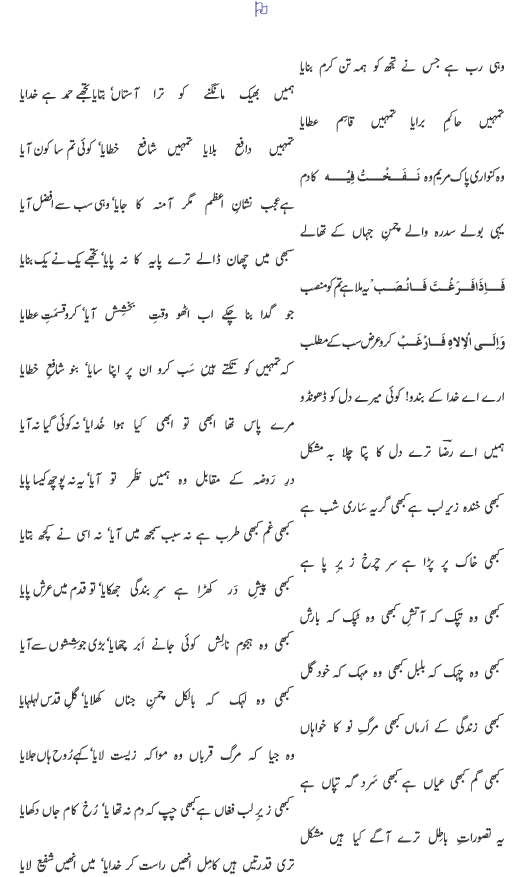 وہی رب ہے جس نے تجھ کو ہمہ تن کرم بنایا
ہمیں بھیک مانگنے کو ترا آستاں بتایا تجھے حمد ہے خدایا
تمہیں حاکمِ برایا تمہیں قاسمِ عطایا
تمہیں دافعِ بلایا تمہیں شافعِ خطایا، کوئی تم سا کون آیا
وہ کنواری پاک مریم وہ نَفَخْتُ فِیْہ کا دم
ہے عجب نشانِ اعظم مگر آمنہ کا جایا، وہی سب سے افضل آیا
یہی بولے سدرہ والے چمنِ جہاں کے تھالے
سبھی میں چھان ڈالے ترے پایہ کا نہ پایا، تجھے یک نے یک بنایا
فَاِذَا فَرَغْتَ فَانْصَبْ یہ ملا ہے تم کو منصب
جو گدا بنا چکے اب اٹھو وقتِ بخشش آیا، کرو قسمتِ عطایا
وَاِلَی الْاِلٰہِ فَارْغَبْ کرو عرض سب کے مطلب
کہ تمہیں کو تکتے ہیں سَب کرو ان پر اپنا سایا، بنو شافعِ خطایا
ارے اے خدا کے بندو! کوئی میرے دل کو ڈھونڈو
مرے پاس تھا ابھی تو ابھی کیا ہوا خُدایا، نہ کوئی گیا نہ آیا
ہمیں اے رضؔا ترے دل کا پتا چلا بہ مشکل
درِ رَوضہ کے مقابل وہ ہمیں نظر تو آیا، یہ نہ پوچھ کیسا پایا
کبھی خندہ زیرِ لب ہے کبھی گریہ سَاری شب ہے
کبھی غم کبھی طرب ہے نہ سبب سمجھ میں آیا، نہ اسی نے کچھ بتایا
کبھی خاک پر پڑا ہے سر چرخ زیرِ پا ہے
کبھی پیشِ دَر کھڑا ہے سرِ بندگی جھکایا، تو قدم میں عرش پایا
کبھی وہ تپک کہ آتش کبھی وہ ٹپک کہ بارش
کبھی وہ ہجومِ نالش کوئی جانے اَبر چھایا، بڑی جوششوں سے آیا
کبھی وہ چہک کہ بلبل کبھی وہ مہک کہ خود گل
کبھی وہ لہک کہ بالکل چمنِ جناں کھلایا، گلِ قدس لہلہایا
کبھی زندگی کے اَرماں کبھی مرگِ نو کا خواہاں
وہ جیا کہ مرگ قرباں وہ موا کہ زیست لایا، کہے رُوح ہاں جلایا
کبھی گم کبھی عیاں ہے کبھی سَرد گہ تپاں ہے
کبھی زیرِ لب فغاں ہے کبھی چپ کہ دم نہ تھا یا، رُخِ کام جاں دکھایا
یہ تصوراتِ باطِل ترے آگے کیا ہیں مشکل
تری قدرتیں ہیں کامِل انھیں راست کر خدایا، میں انھیں شفیع لایا